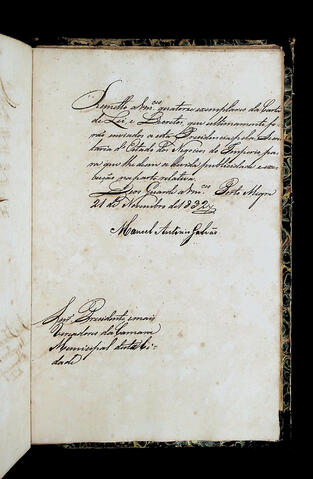 Remetto a Vm.ces quatorze exemplares de Cartas
de Lei, e Decretos, que ultimamente fo-
rão enviados a esta Presidencia pela Secre-
taria d'Estado dos Negocios do Imperio pa-
ra que lhe dem a devida publicidade e exe-
cução na parte relativa.
Deos Guarde a Vm.ces Porto Alegre
21 de Novembro de 1832
Manoel Antonio Galvão
Snr.es Presidente, e mais
Vereadores da Camara
Municipal desta Ci-
dade